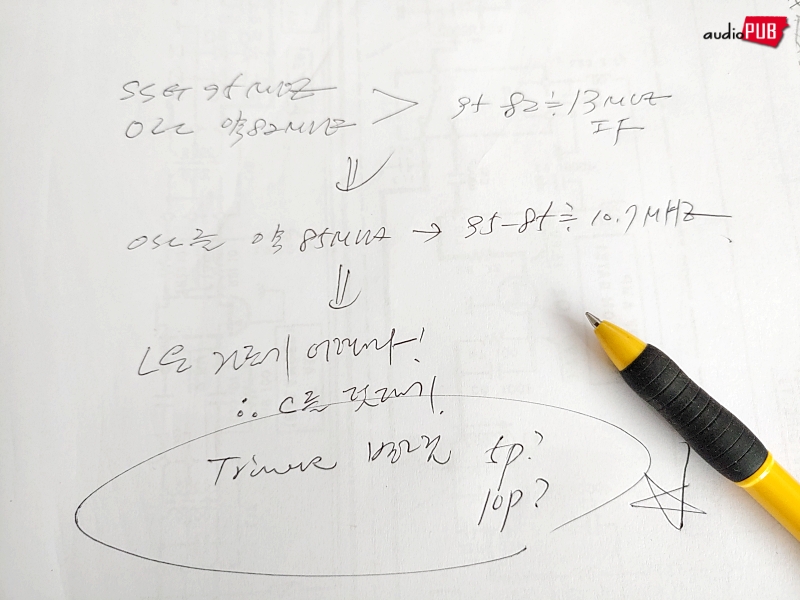 audioPUB
SSG 95MHZ
OSC 약82MHZ > 95-82≒13MHZ
IF
⇓
OSC를 약 85MHZ → 95-85≒10.7MHZ
⇓
L은 어렵다!
∴ C를
Trimer 5p?
10p?